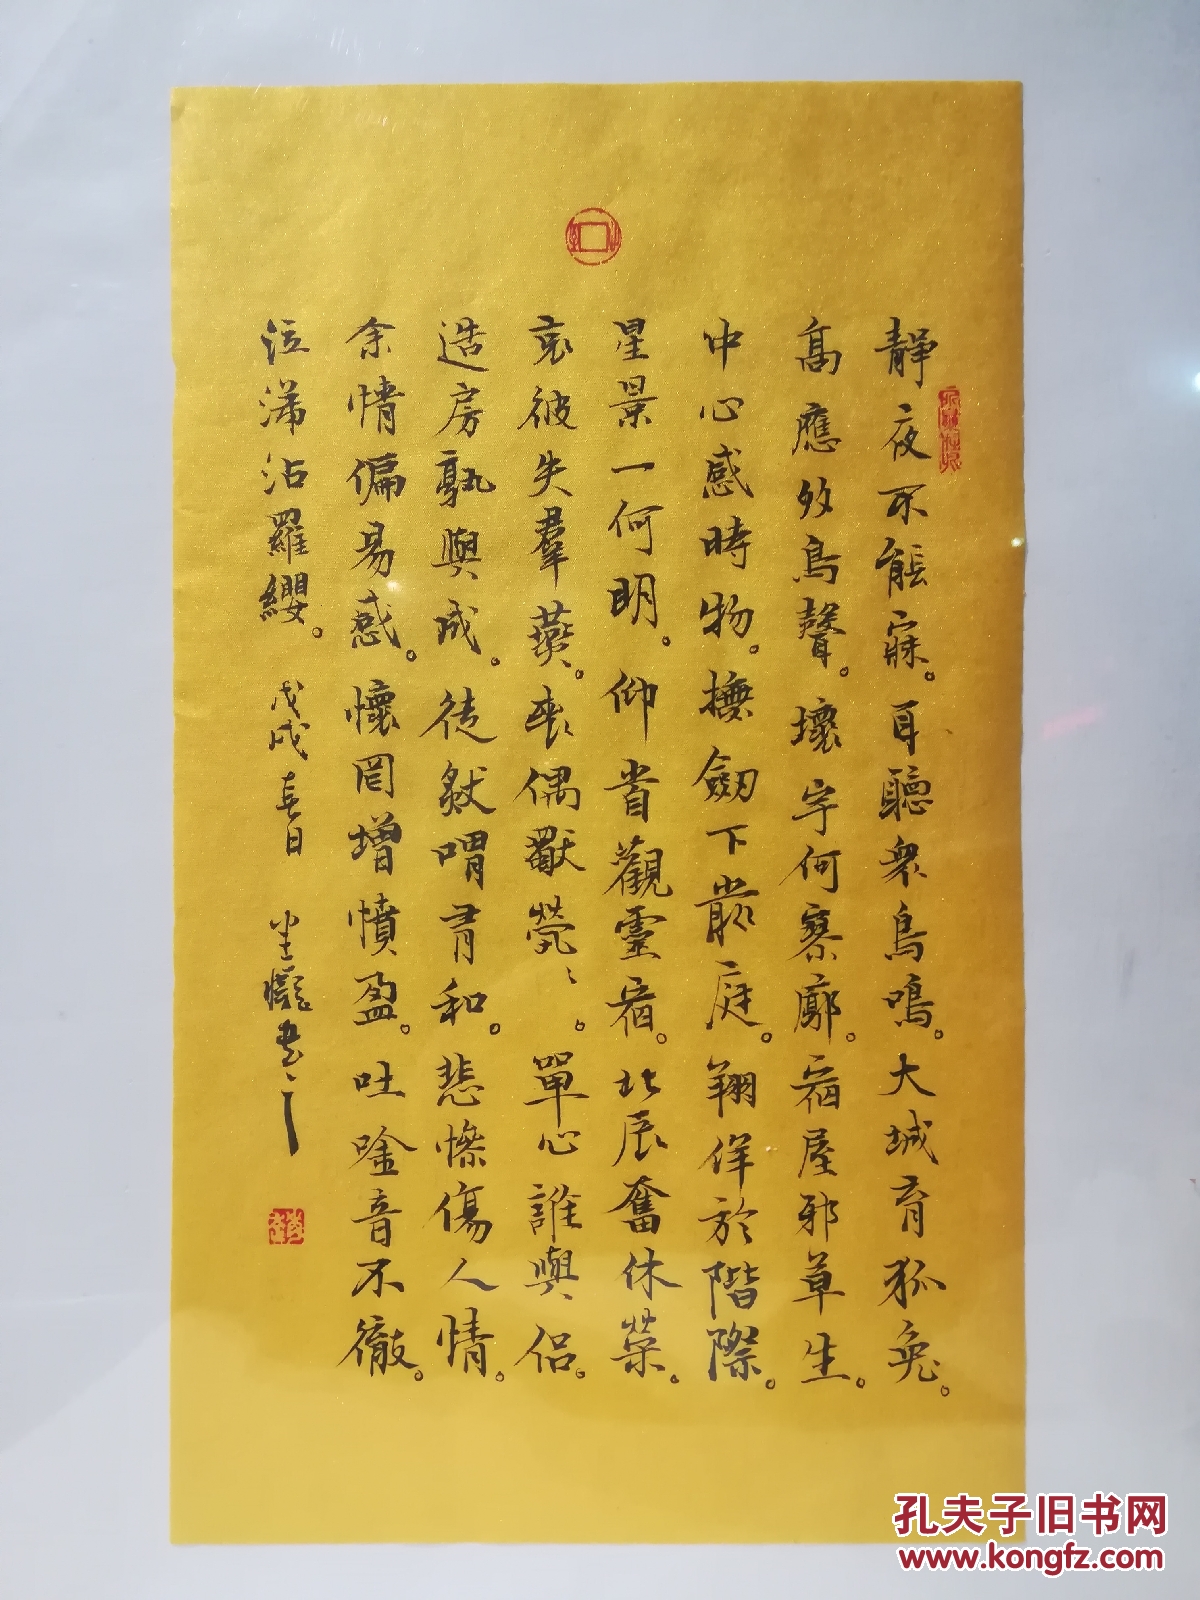 靜夜不能寐。耳聽衆鳥鳴。大城育狐兔。
高應多鳥聲。壞宇何寥廓。宿屋邪草生。
中心感時物。撫劒下前庭。翔佯於階際。
星景一何明。仰首觀靈宿。北辰奮休榮。
哀彼失羣燕。喪偶獨煢〻。單心誰與侶。
造房孰與成。徒然喟有和。悲慘傷人情。
余情偏易感。懷罔增憤盈。吐唫音不徹。
泣涕沾羅纓。戊戌春日
孔夫子旧书网
www.kongfz.com